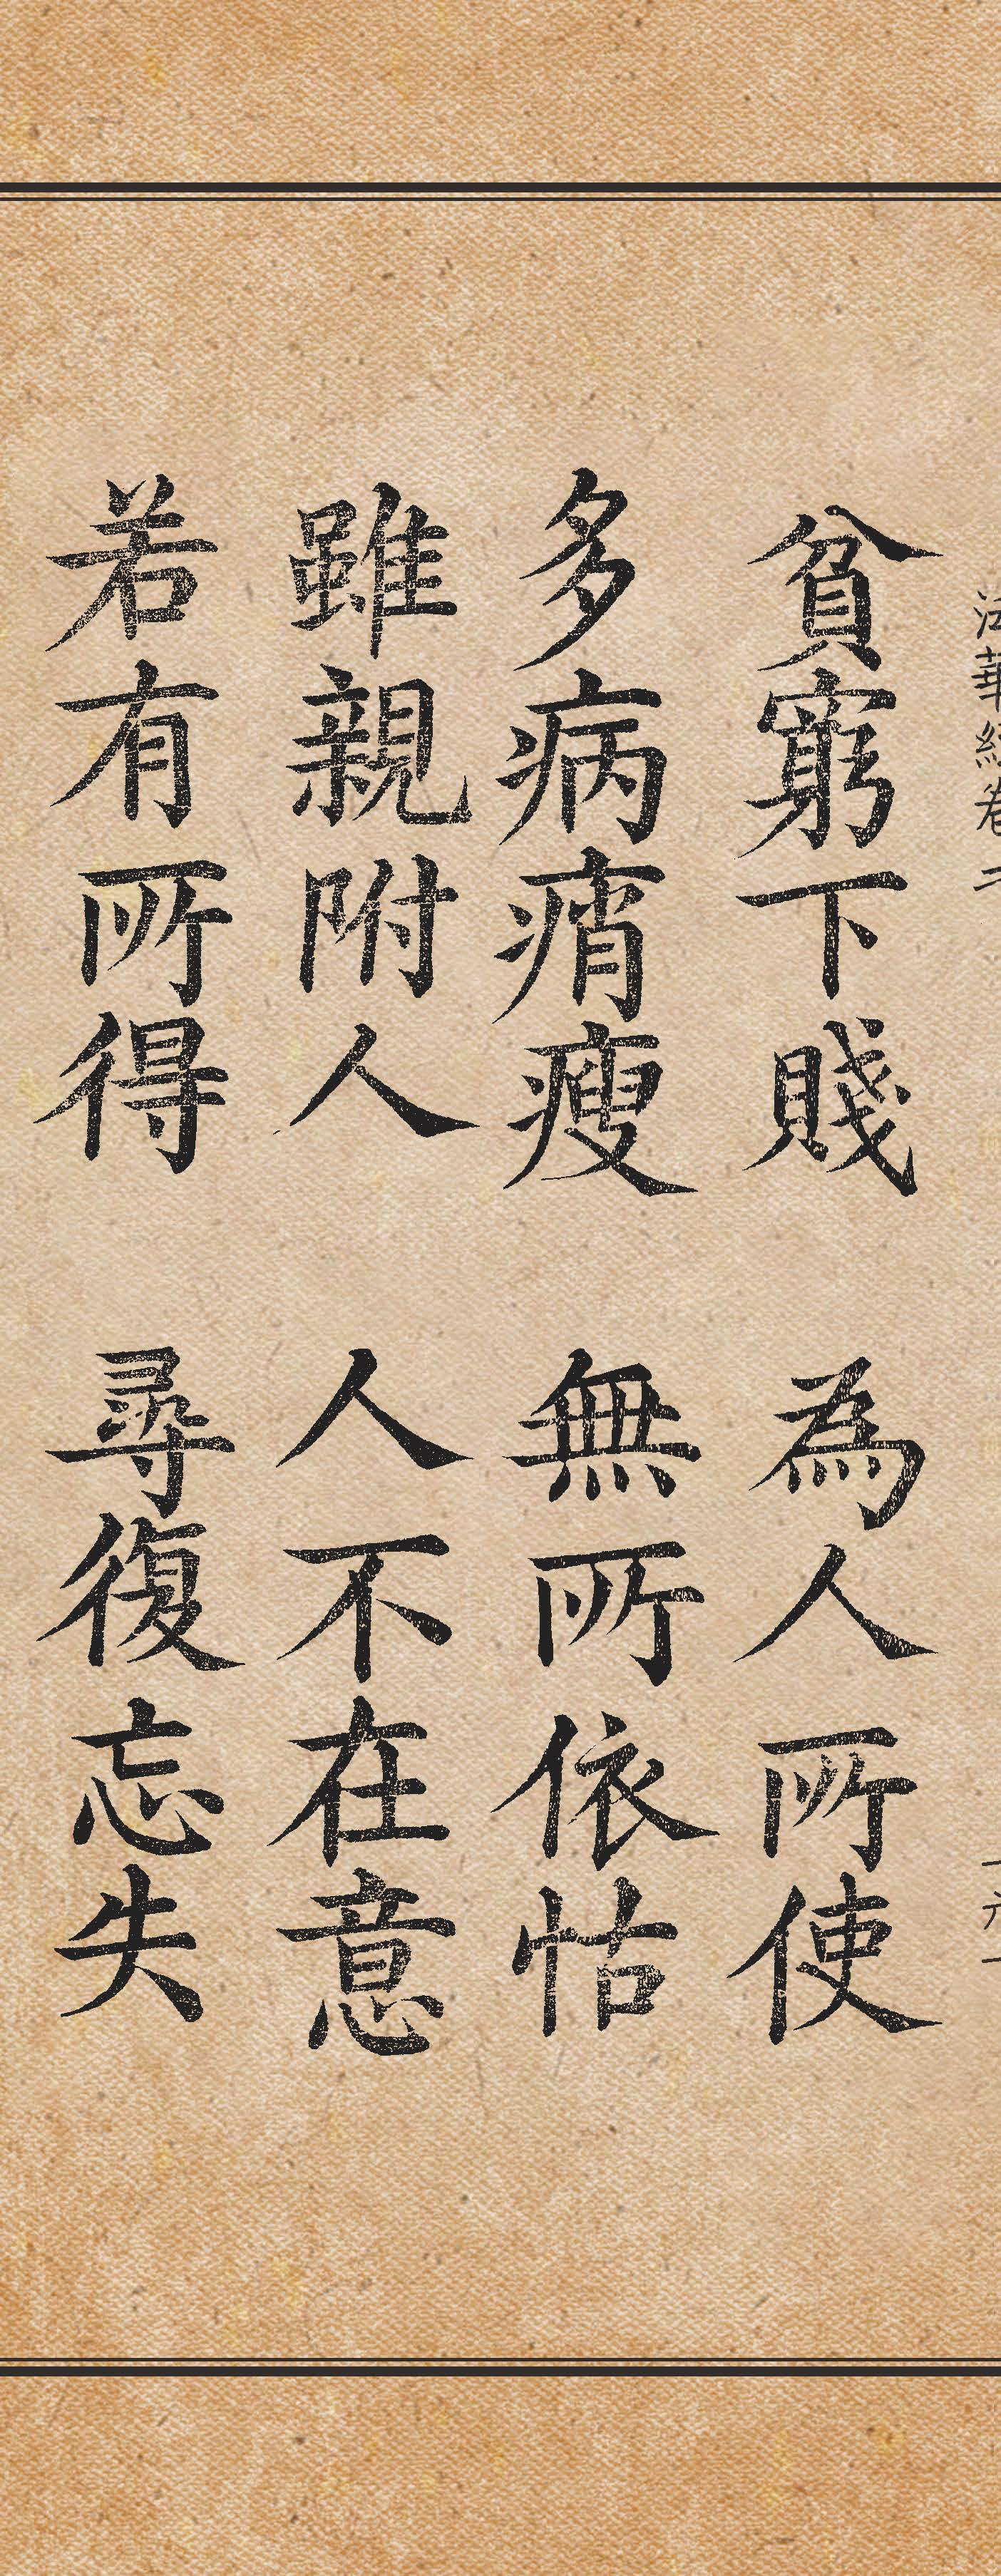 法華經卷二
貧窮下賤 為人所使
多病痟瘦 無所依怙
雖親附人 人不在意
若有所得 尋復忘失